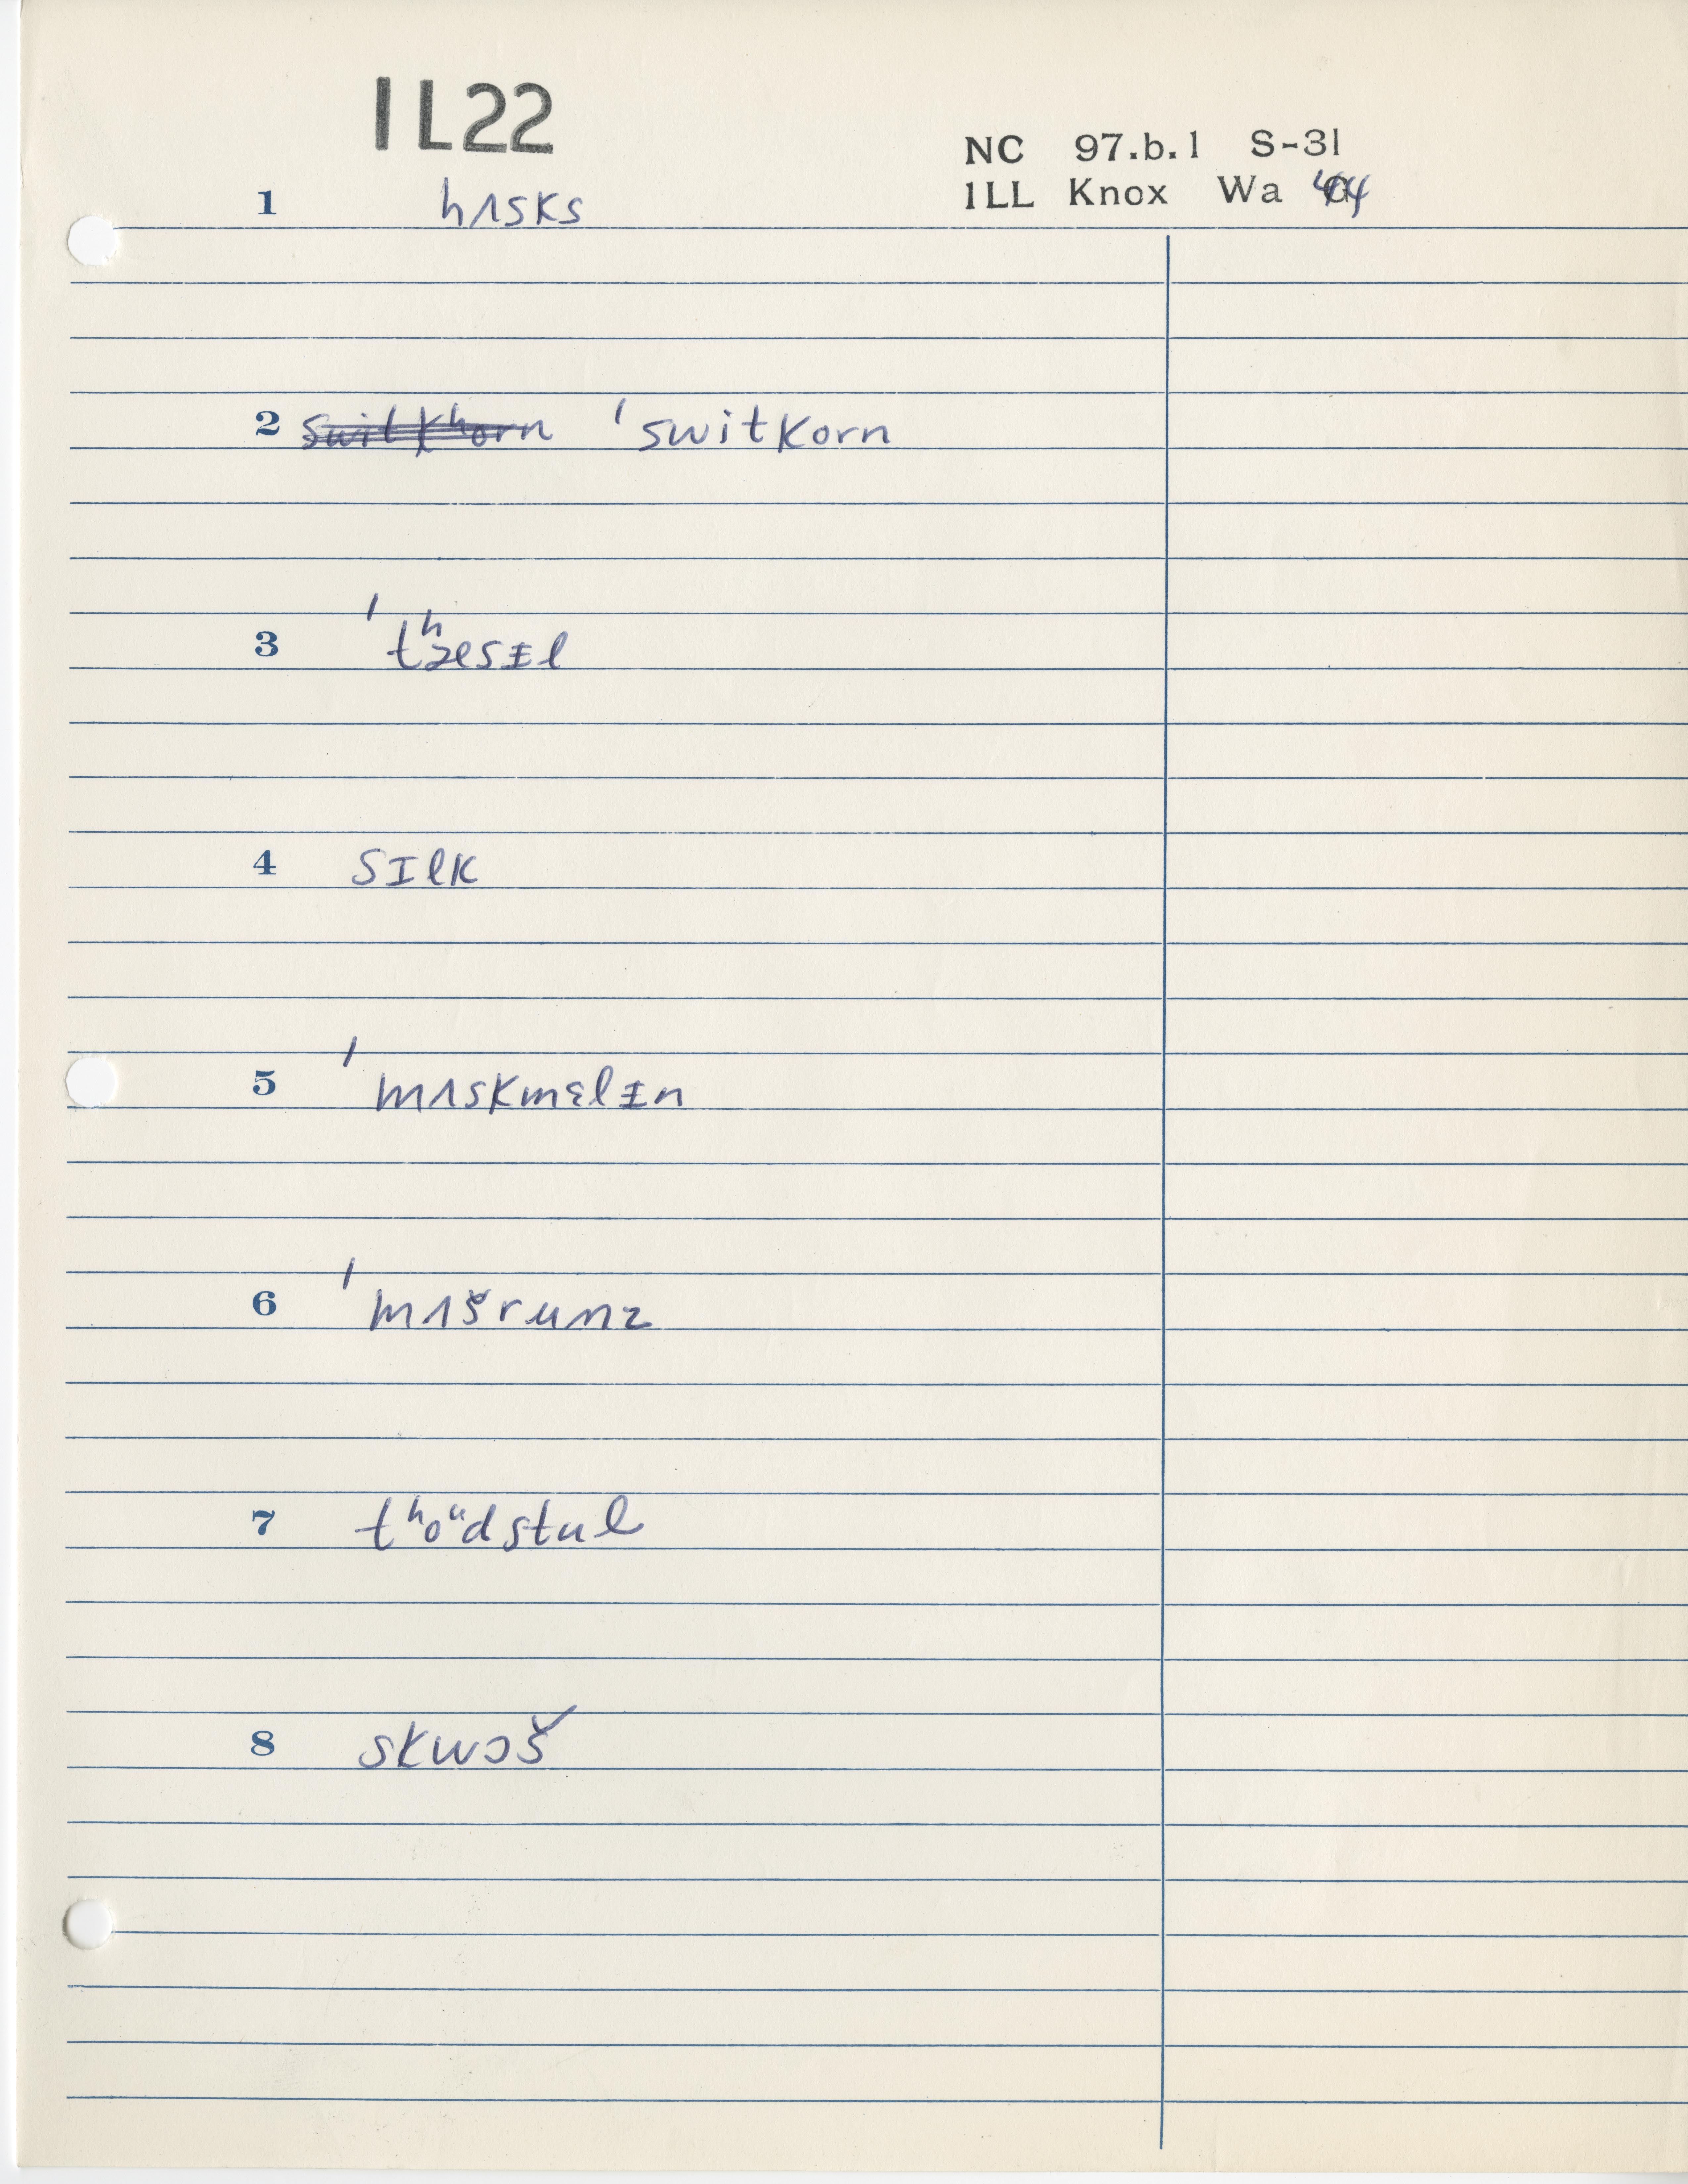 1L22
NC 97.b.1 S-31
1LL Knox Wa '44
1 hʌsks
2 swit kʰorn ˈswitkorn
3 ˈtʰæsɪ̵l
4 sɪlk
5 ˈmʌskmɛlɪ̵n
6 ˈmʌšrumz
7 tʰoᵘdstul
8 skwɔš